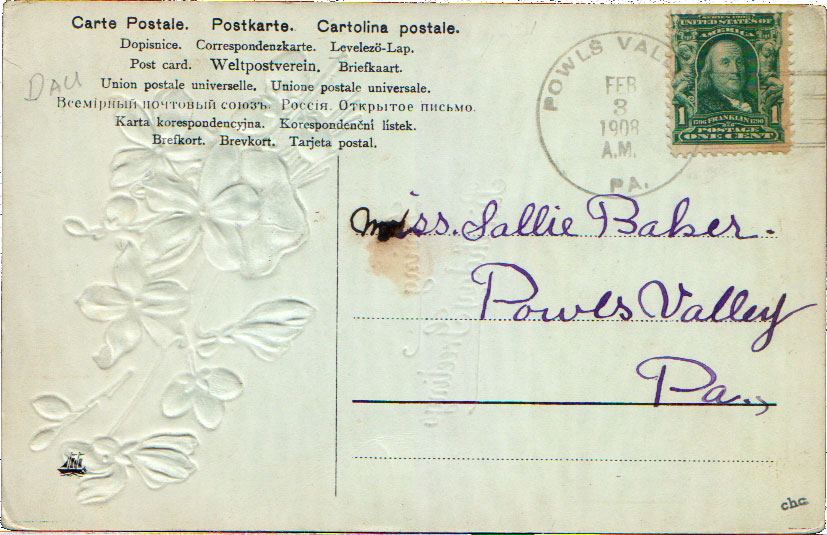 Carte Postale. Postkarte. Cartolina postale.
Dopisnice. Correspondenzkarte. Levelező-Lap.
Post card. Weltpostverein. Briefkaart.
Union postale universelle. Unione postale universale.
Всемірный почтовый союзъ. Россія. Открытое письмо.
Karta korespondencyjna. Korespondenční lístek.
Brefkort. Brevkort. Tarjeta postal.
DAU
POWLS VAL
FEB
3
1908
A.M.
PA.
SERIES 1902
UNITED STATES OF
AMERICA
1706 FRANKLIN 1790
1 POSTAGE 1
ONE CENT
Miss. Sallie Baker.
Powls Valley
Pa.,
chc